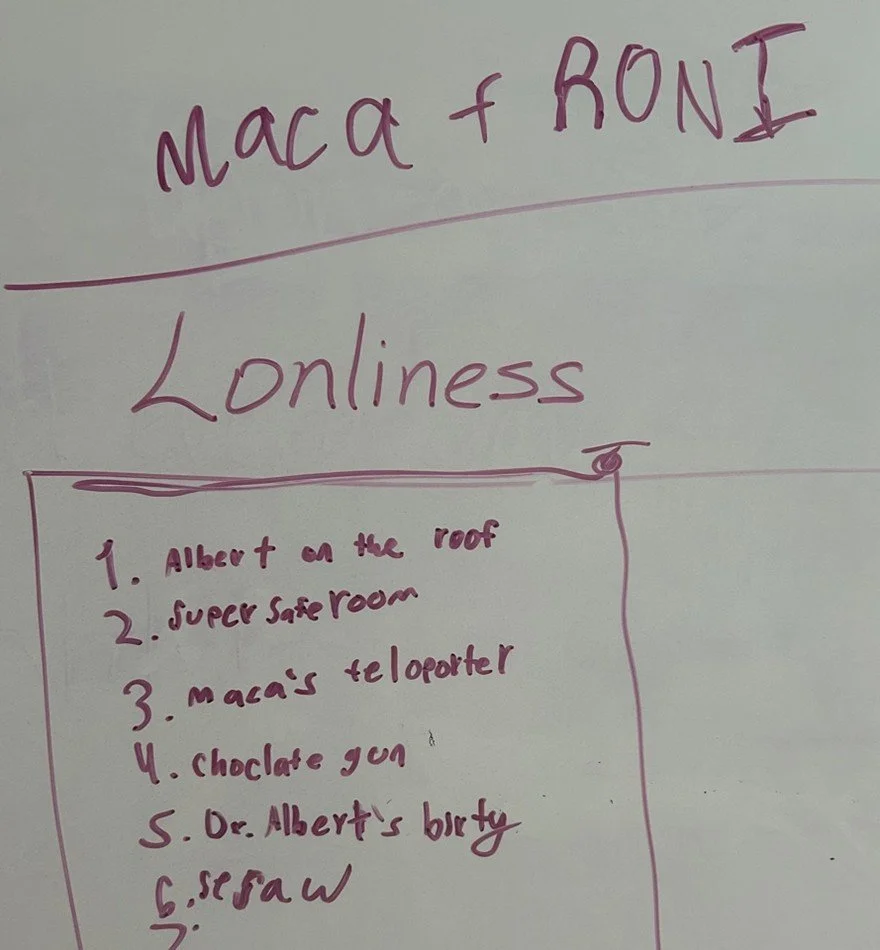 Maca + RONI
Lonliness
1. Albert on the roof
2. Super Safe room
3. Maca's teloporter
4. Choclate gun
5. Dr. Albert's birty
6. sesaw
7.